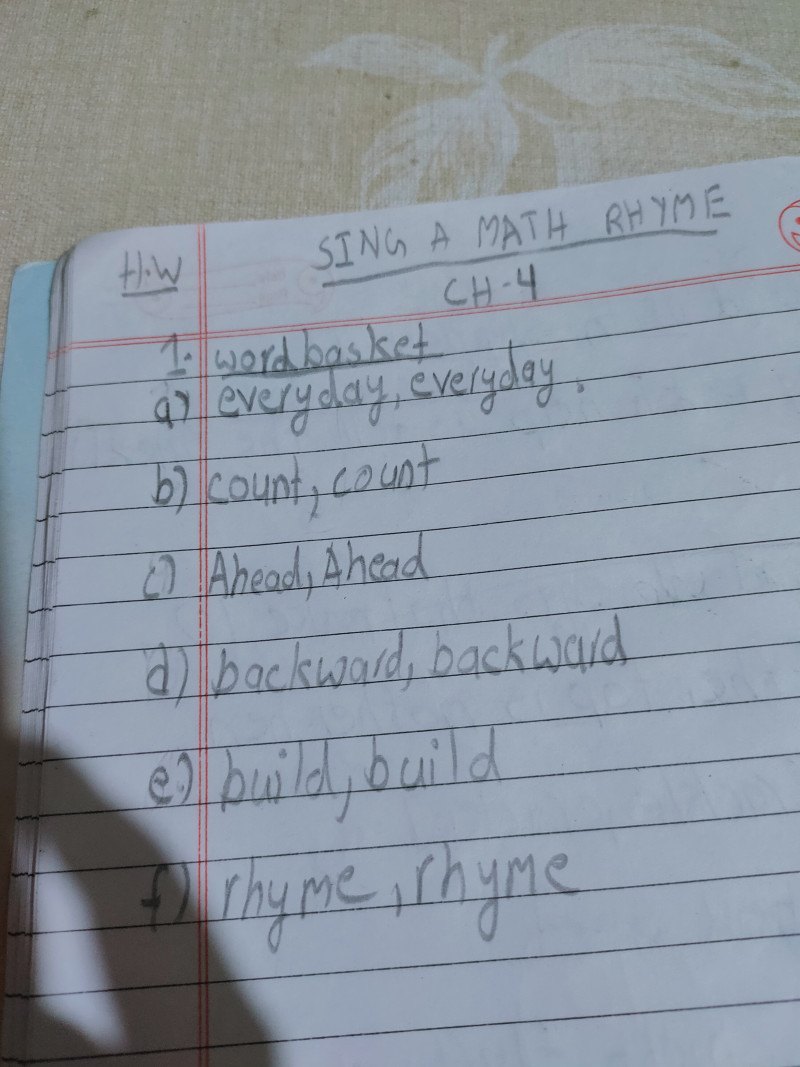 SING A MATH RHYME
H.W
CH-4
1. wordbasket
a) everyday, everyday.
b) count, count
c) Ahead, Ahead
d) backward, backward
e) build, build
f) rhyme, rhyme